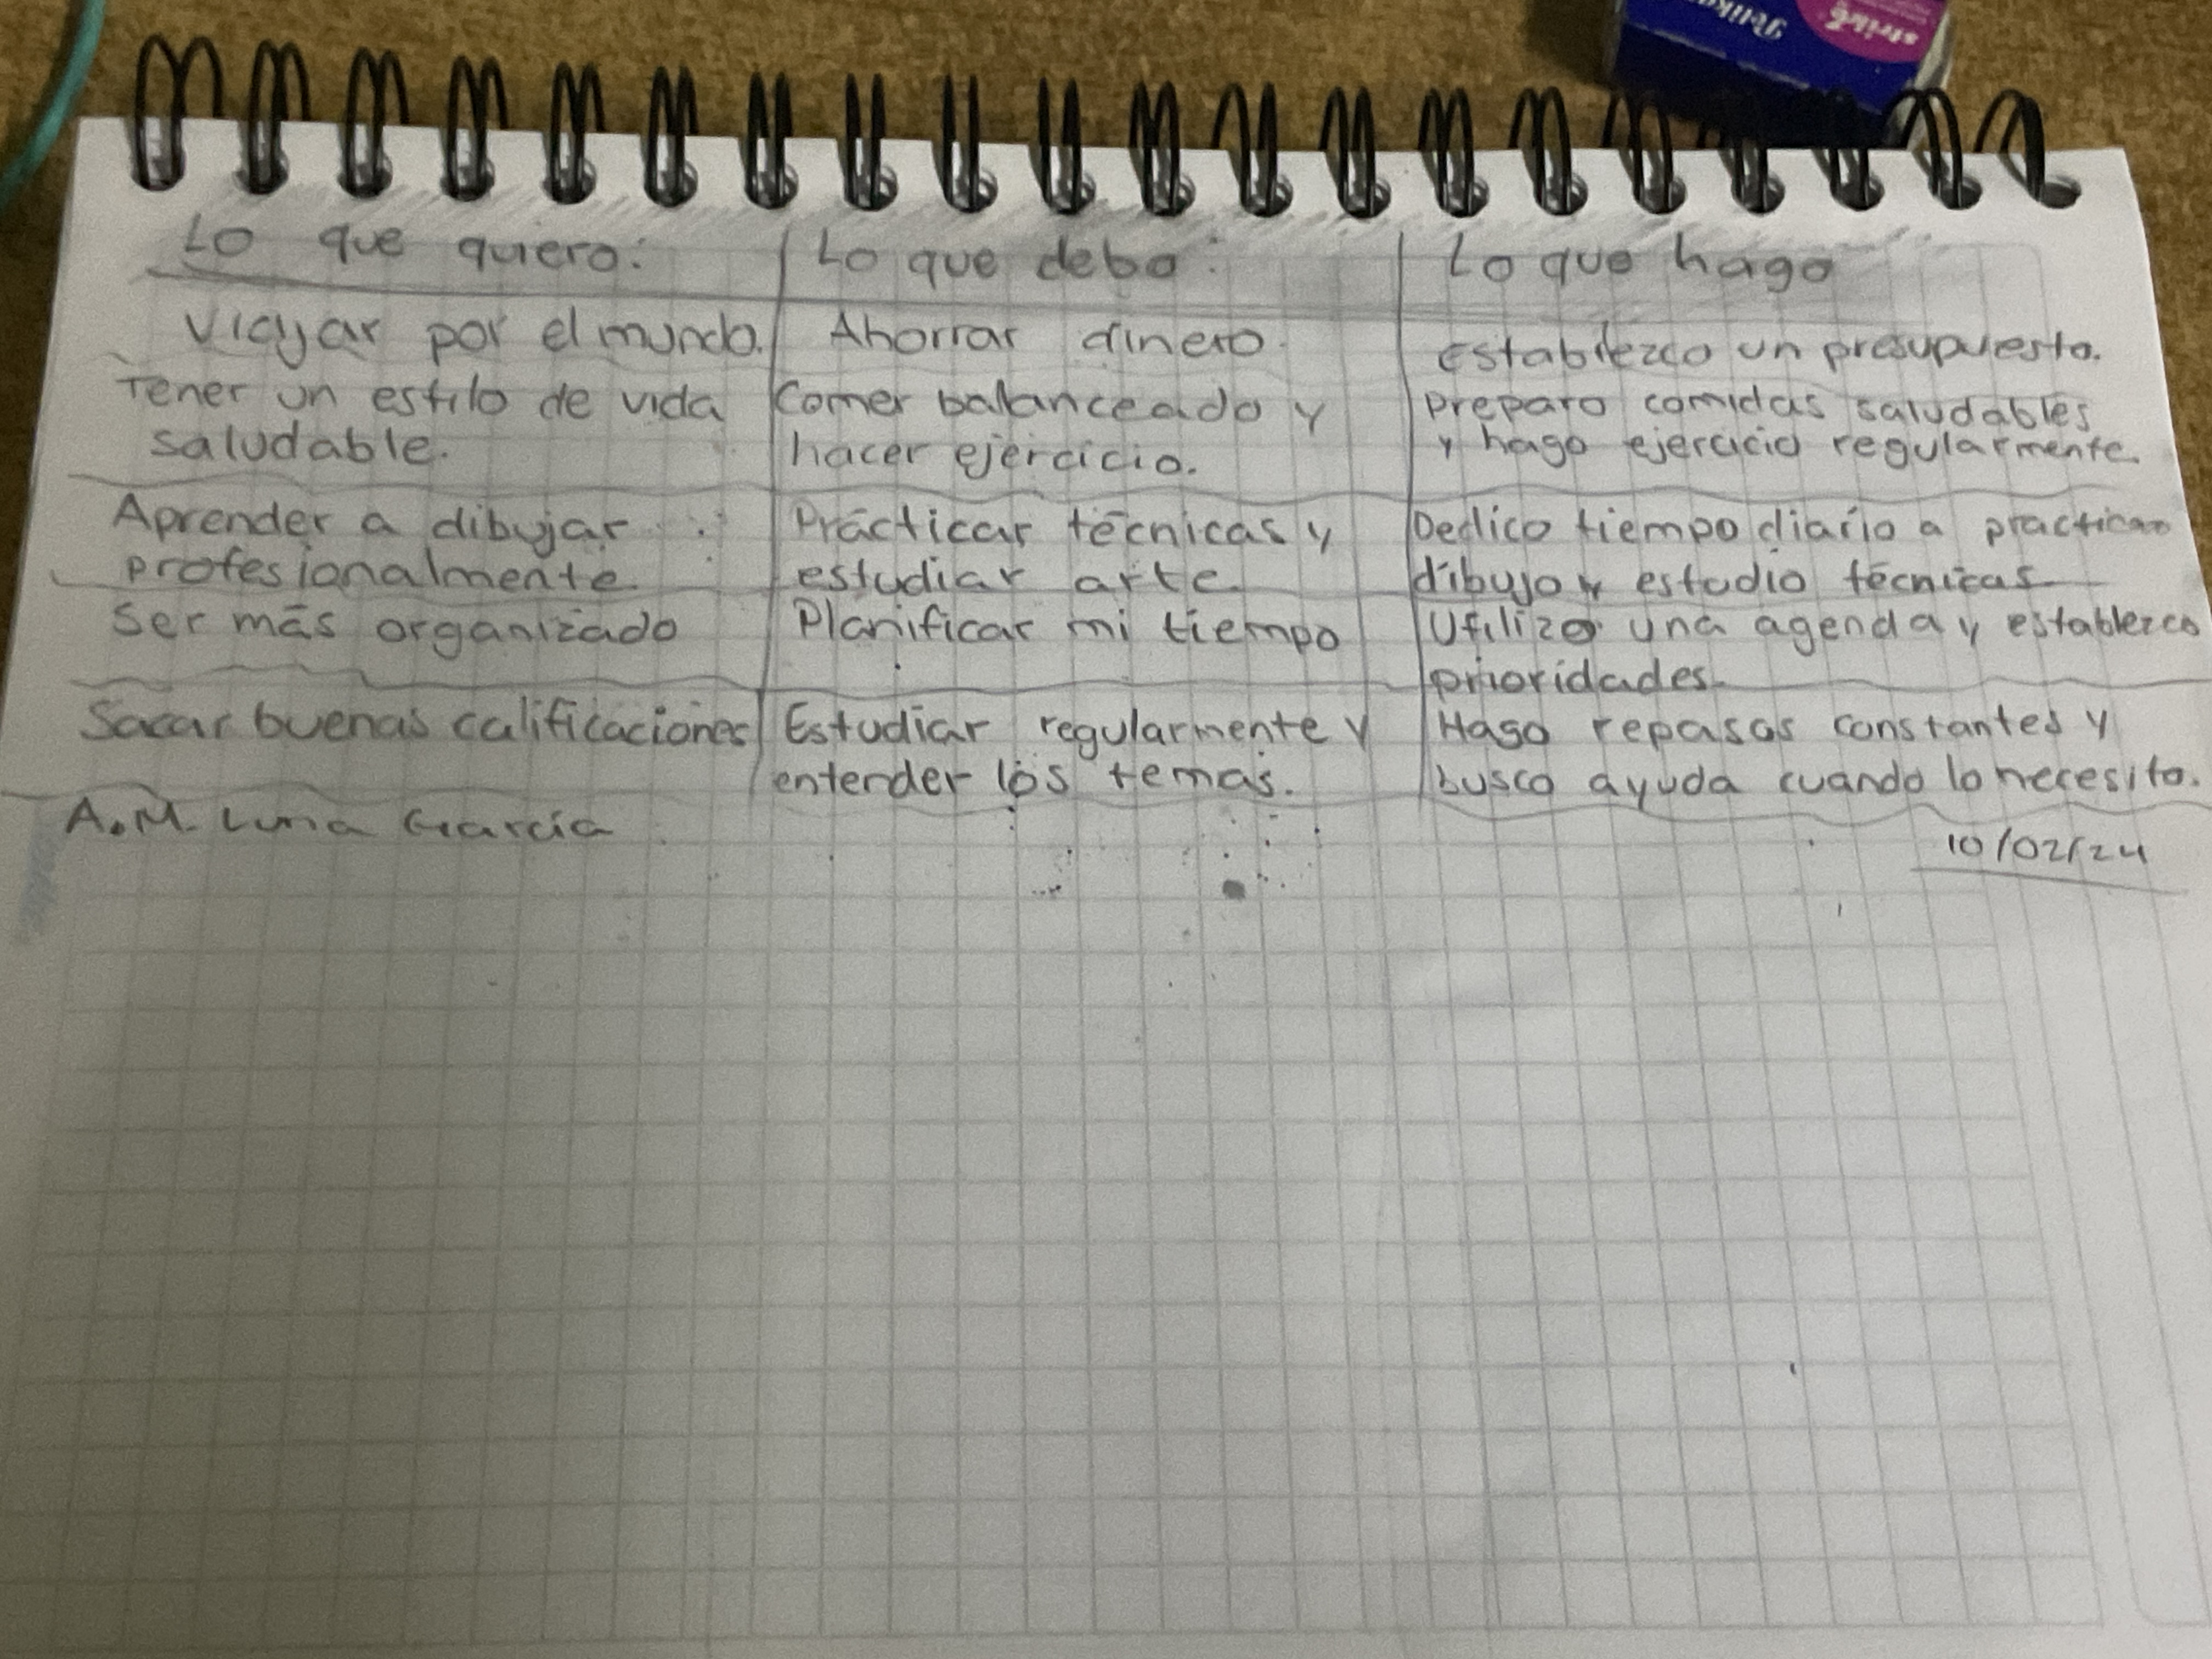 Pelikan
Lo que quiero: Lo que debo: Lo que hago
Viajar por el mundo. Ahorrar dinero. Establezco un presupuesto.
Tener un estilo de vida Comer balanceado y Preparo comidas saludables
saludable. hacer ejercicio. y hago ejercicio regularmente.
Aprender a dibujar Prácticar técnicas y Dedico tiempo diario a practicar
profesionalmente estudiar arte dibujo y estudio técnicas
Ser más organizado Planificar mi tiempo Utilizo una agenda y establezco
prioridades.
Sacar buenas calificaciones Estudiar regularmente y Hago repasos constantes y
entender los temas. busco ayuda cuando lo necesito.
A.M. Luna García
10/02/24